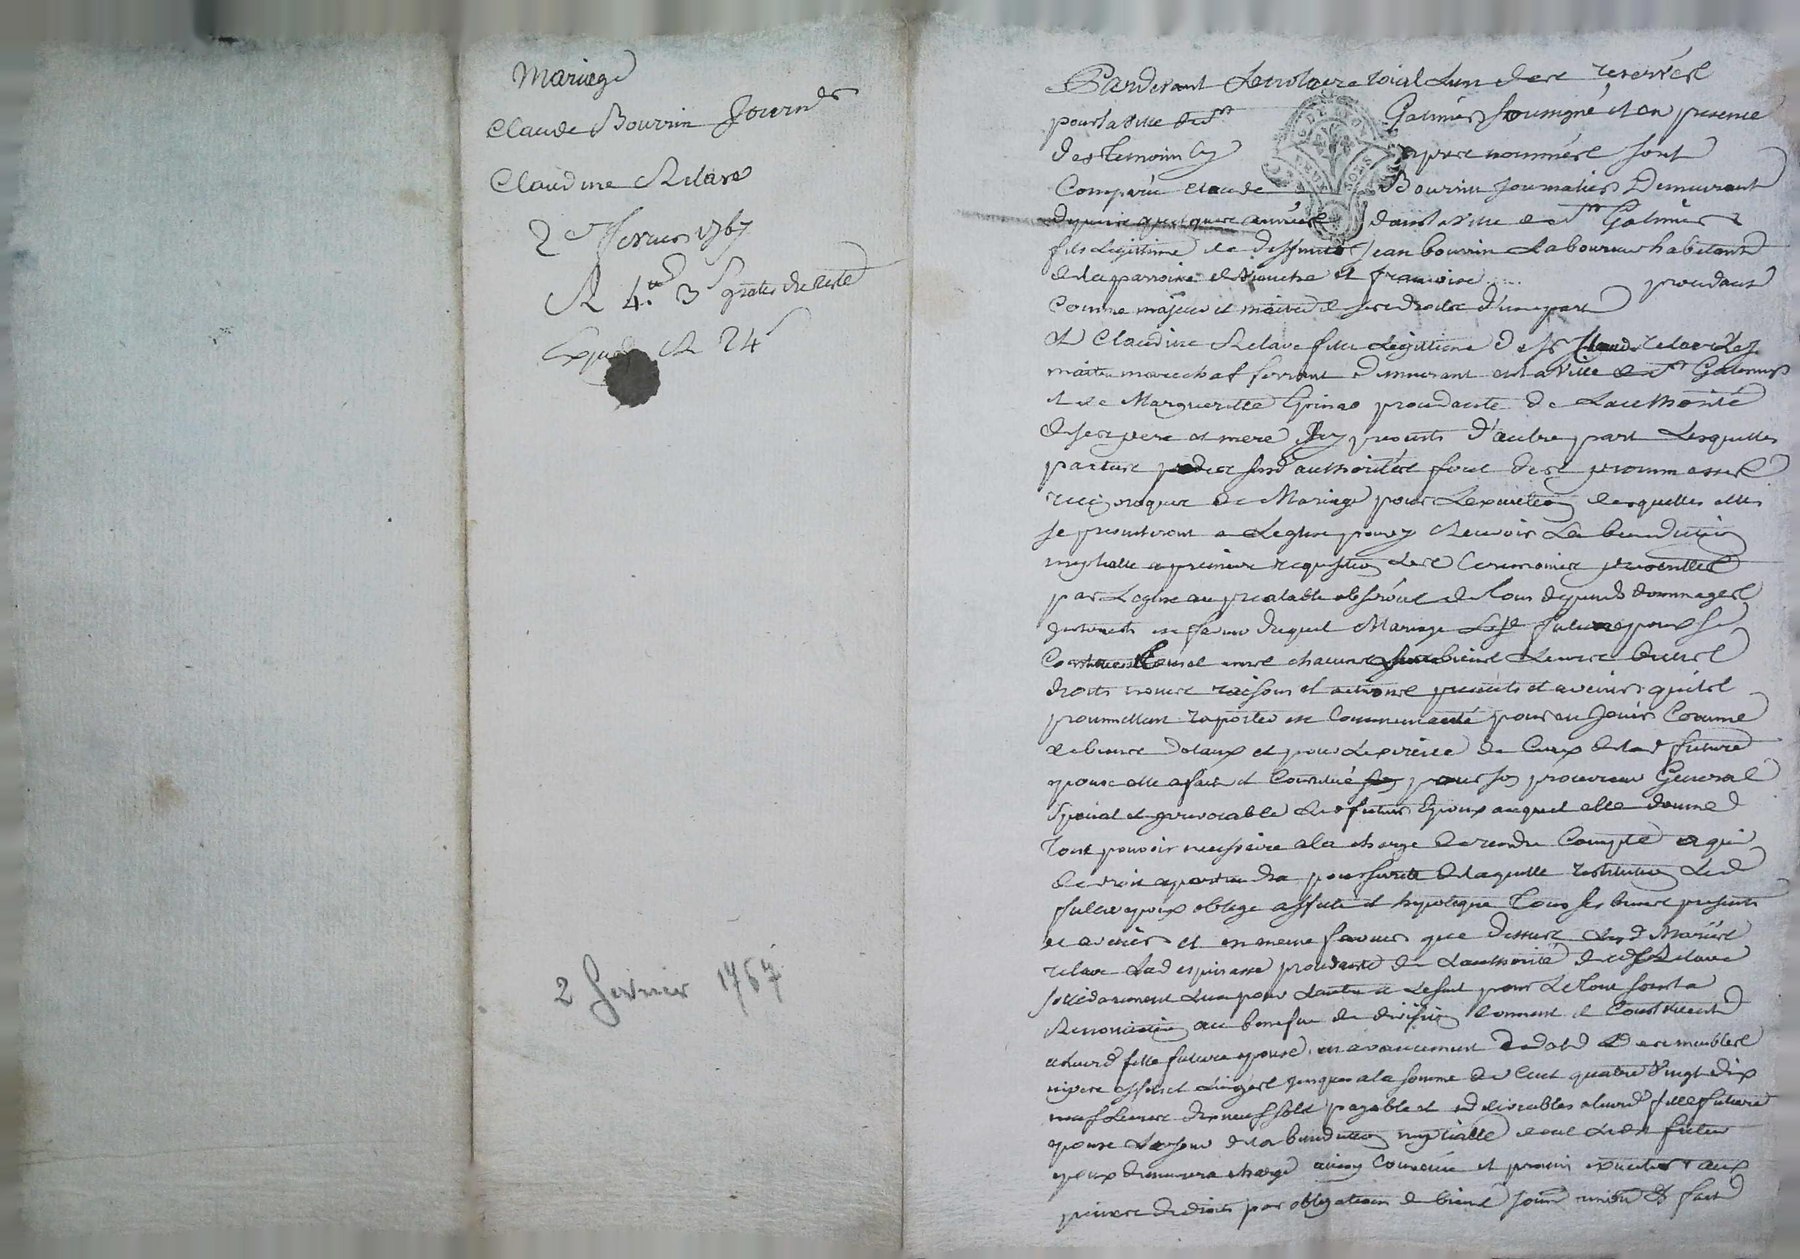 Mariage
Claude Bourrin Journer
Claudine Relave
2e fevrier 1767
R 4.tt 3s
Exped R 24s
2 fevrier 1767
Pardevant Le notaire roial L'un des reservés
pour la ville de St Galmier soussigné et en presence
des temoins cy apres nommés sont
Comparu Claude Bourrin Journalier Demeurant
depuis quelques années dans la ville de St Galmier
fils Legitime de deffunct Jean bourrin Laboureur habitant
de la parroisse et francoise ..... procedant
Comme majeur et maitre de ses droits d'une part
Et Claudine Relave fille Legitime de Sr Claude relave
maitre marechal ferrant demeurant en la ville de St Galmier
et de Margueritte procedante de L'authorité
de ses pere et mere icy presents d'autre part Lesquelles
parties sous d'authorités font des promesses
reciproques de Mariage pour L'execution desquelles elles
se presenteront a L'eglise pour y Recevoir La benediction
nuptialle a premiere requisition Les Ceremonies
par L'eglise au prealable observées de tous depends dommages
interests en faveur duquel Mariage Les futurs epoux se
Constituent tous et uns chacuns leurs biens
droits noms raisons et actions presents et avenir quils
promettent raporter en Communauté pour en Jouir Comme
de biens dotaux et pour de Ceux de lad future
epouse elle a fait et Constitué pour son procureur General
Special et irrevocable Led futur Epoux auquel elle donne
tout pouvoir necessaire a la charge de rendre Compte a qui
de droit apartiendra pour sureté de laquelle restitution Led
futur epoux oblige affecte et hypoteque tous ses biens presents
et avenir et en meme faveur que dessus Lesd Mariés
relave Lad espinasse procedante de L'authorité dud Sr Relave
solidairement L'un pour L'autre et Le seul pour Le tout sous la
Renonciation au benefice de division donnent et Constituent
a leurd fille future epouse en avancement de dot des meubles
effets et Linges Jusques a la somme de Cent quatre Vingt dix
neuf Livres dix neuf sols payables et delivrables a leurd fille future
epouse Le jour de la benediction nuptialle dont Led futur
epoux demeurera chargé ainsy Convenu et promis executer aux
peines de droit par obligation de biens soum renon &t fait